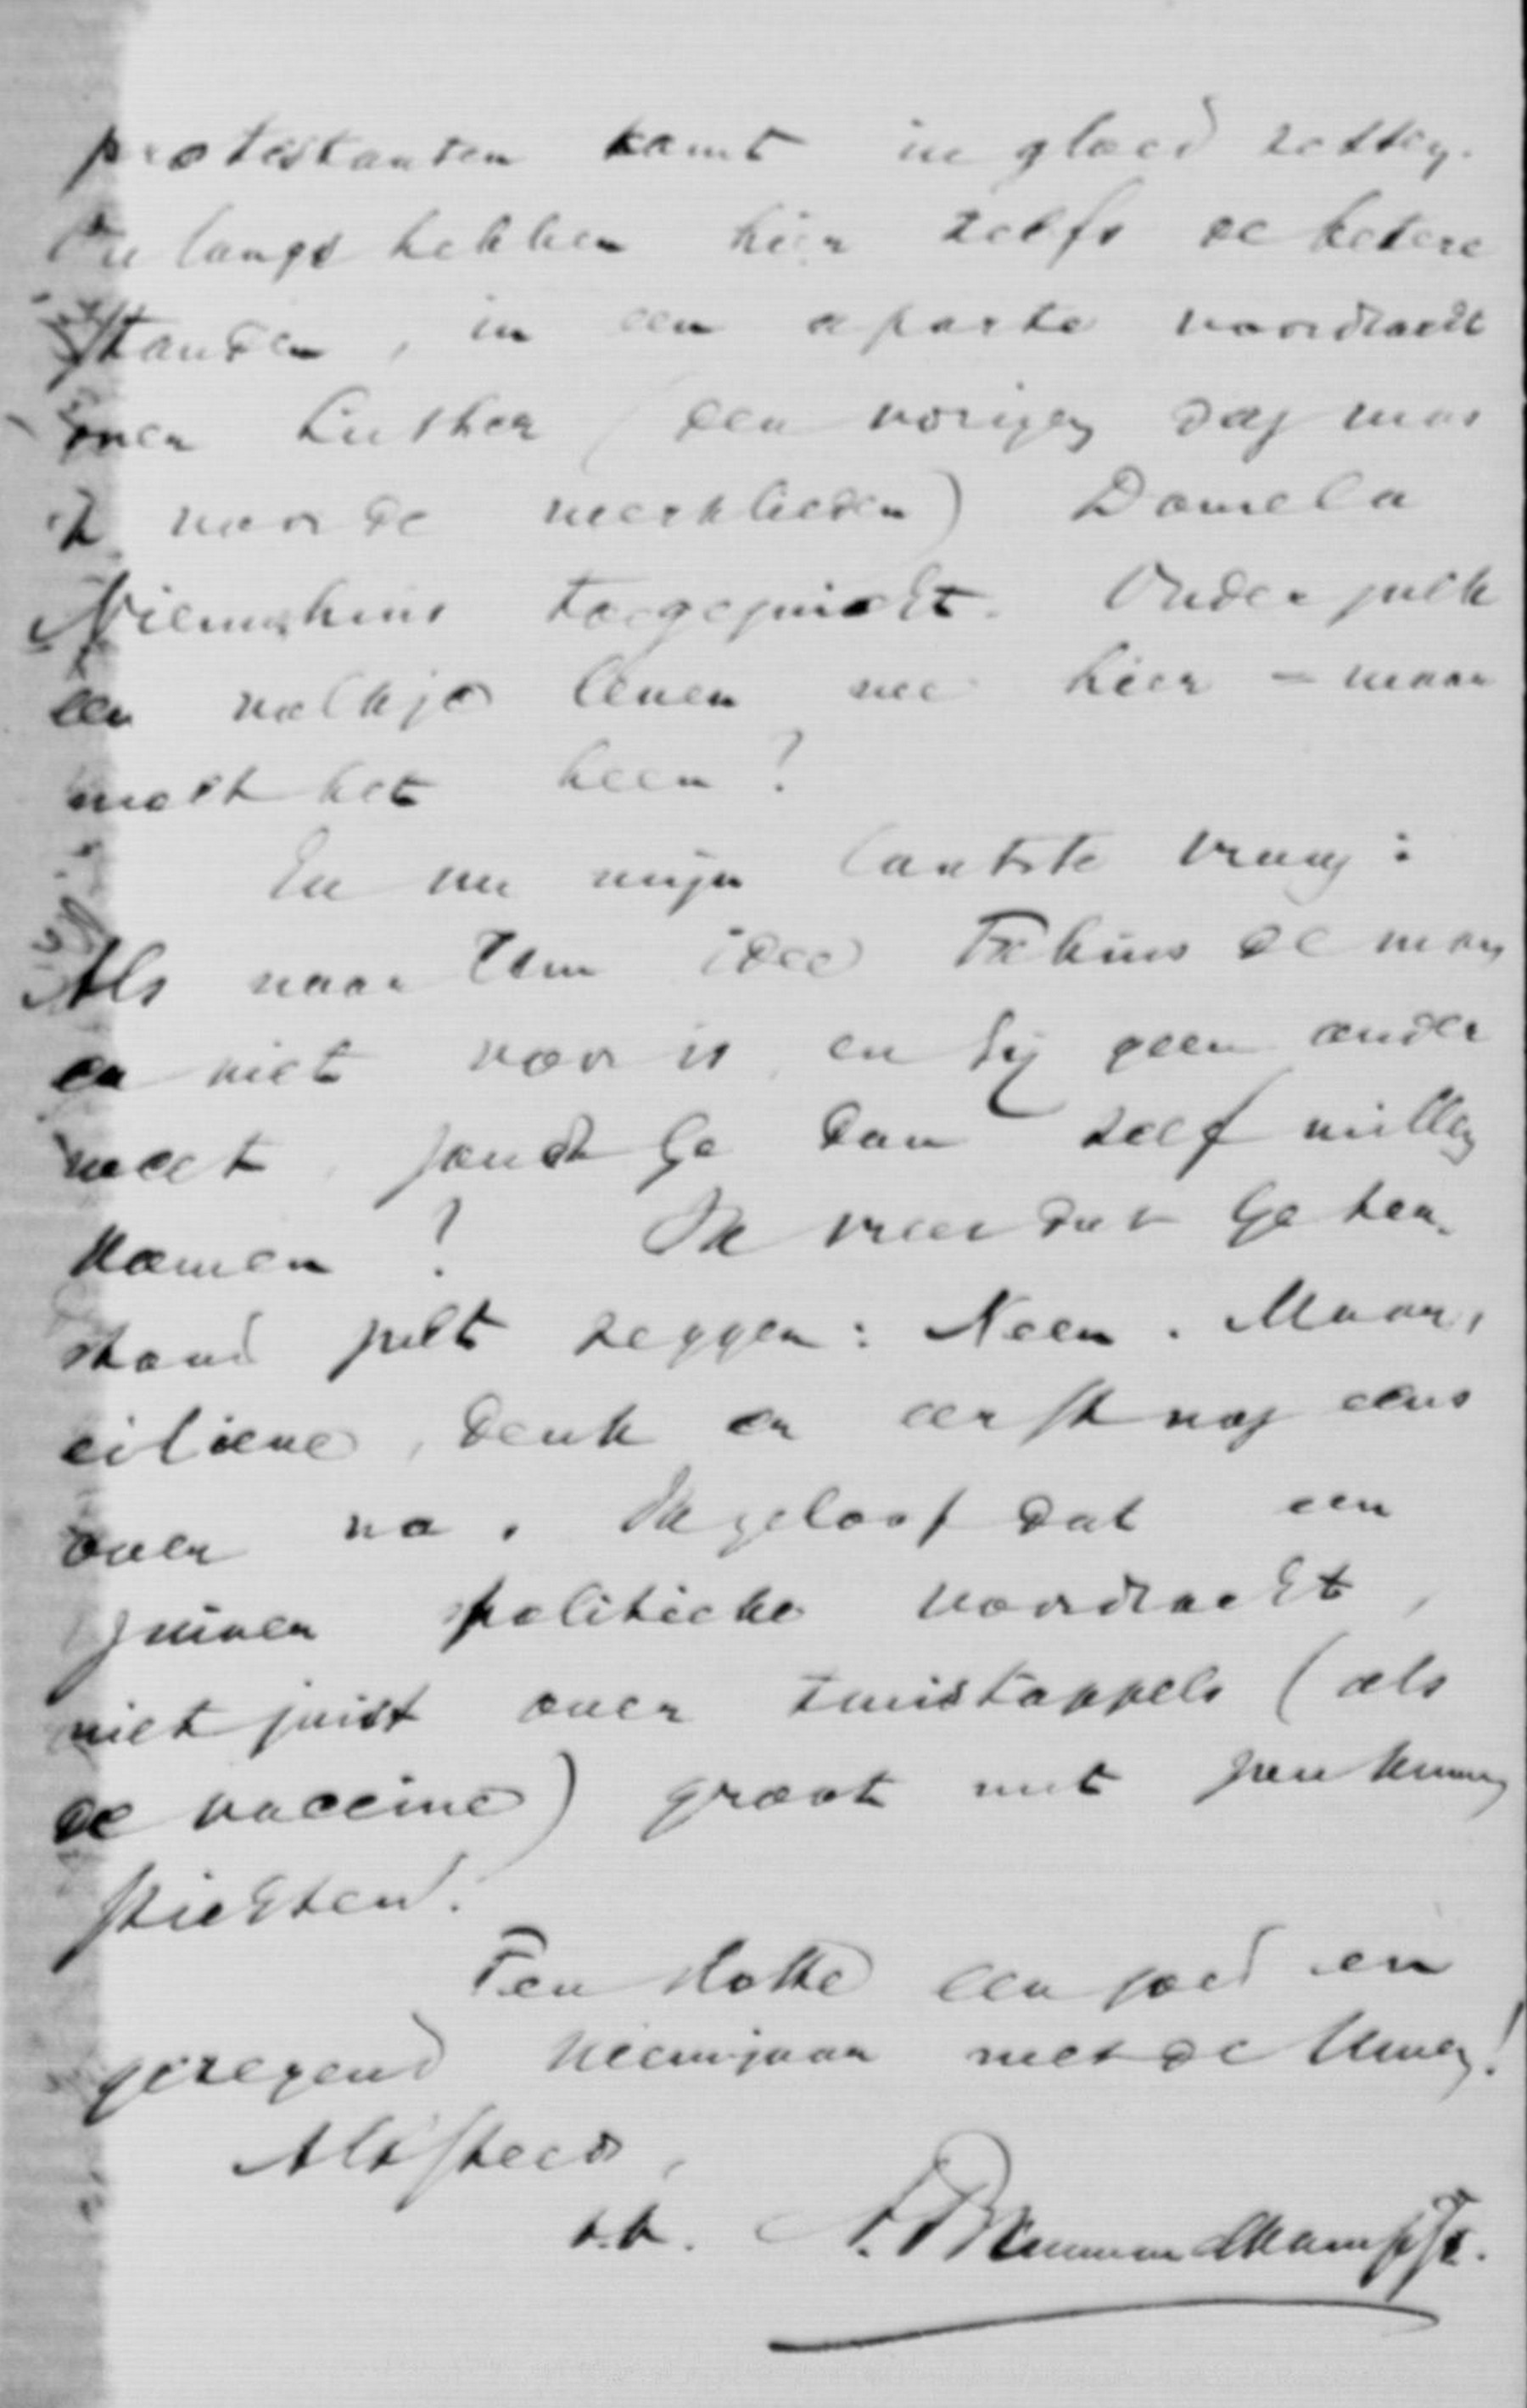 protestanten komt in gloed zetten.
Onlangs hebben hier zelfs de betere
standen, in een aparte voordracht
over Luther (den vorigen dag was
ik voor de werklieden) Domela
Nieuwenhuis toegejuicht. Onder zulk
een volkje leven we hier – waar
moet het heen?
En nu mijn laatste vraag:
Als naar Uw idee Fabius de man
er niet voor is, en hij geen ander
weet, zoudt Ge dan zelf willen
komen? Ik vrees dat Ge ter-
stond zult zeggen: Neen. Maar,
eilieve, denk er eerst nog eens
over na. Ik geloof dat een
zuiver politieke voordracht,
niet juist over twistappels (als
de vaccine) groot nut zou kunnen
stichten.
Ten slotte een goed en
gezegend nieuwjaar met de Uwen!
Altsteeds,
t.t. A. Brummelkamp Jr.